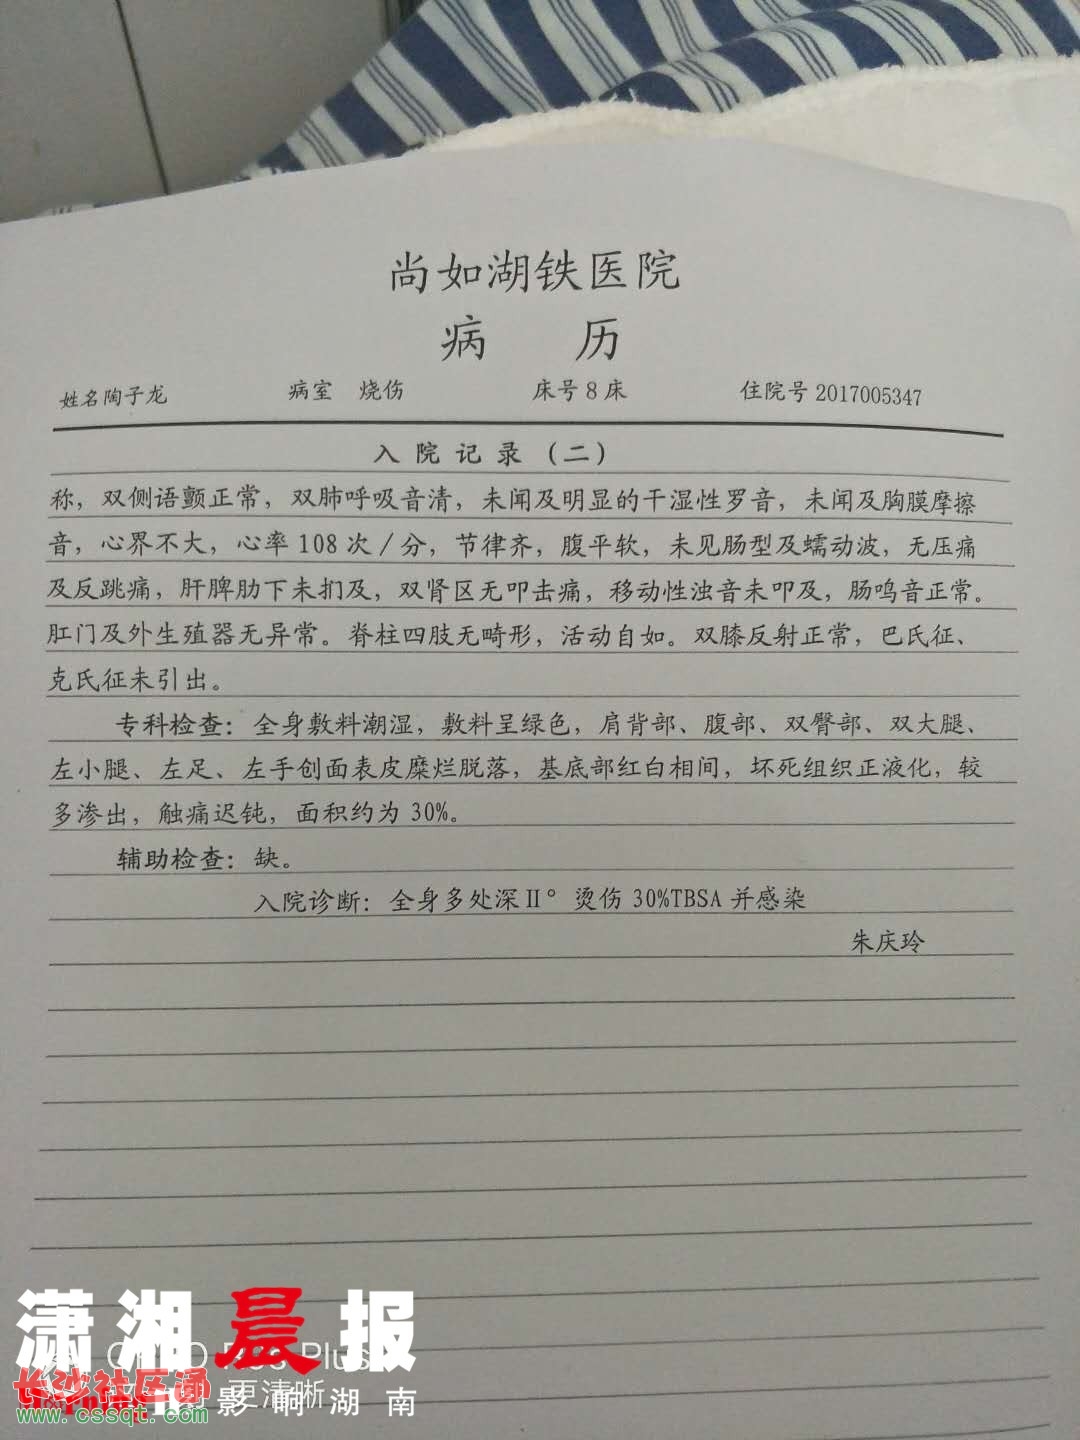 尚如湖铁医院
病 历
姓名陶子龙 病室 烧伤 床号8床 住院号2017005347
入院记录(二)
称，双侧语颤正常，双肺呼吸音清，未闻及明显的干湿性罗音，未闻及胸膜摩擦
音，心界不大，心率108次/分，节律齐，腹平软，未见肠型及蠕动波，无压痛
及反跳痛，肝脾肋下未扪及，双肾区无叩击痛，移动性浊音未叩及，肠鸣音正常。
肛门及外生殖器无异常。脊柱四肢无畸形，活动自如。双膝反射正常，巴氏征、
克氏征未引出。
专科检查：全身敷料潮湿，敷料呈绿色，肩背部、腹部、双臀部、双大腿、
左小腿、左足、左手创面表皮糜烂脱落，基底部红白相间，坏死组织正液化，较
多渗出，触痛迟钝，面积约为30%。
辅助检查：缺。
入院诊断：全身多处深II°烫伤30%TBSA并感染
朱庆玲
潇湘晨报
Plus
长沙社区通
更清晰
影响湖南
www.cssqt.com